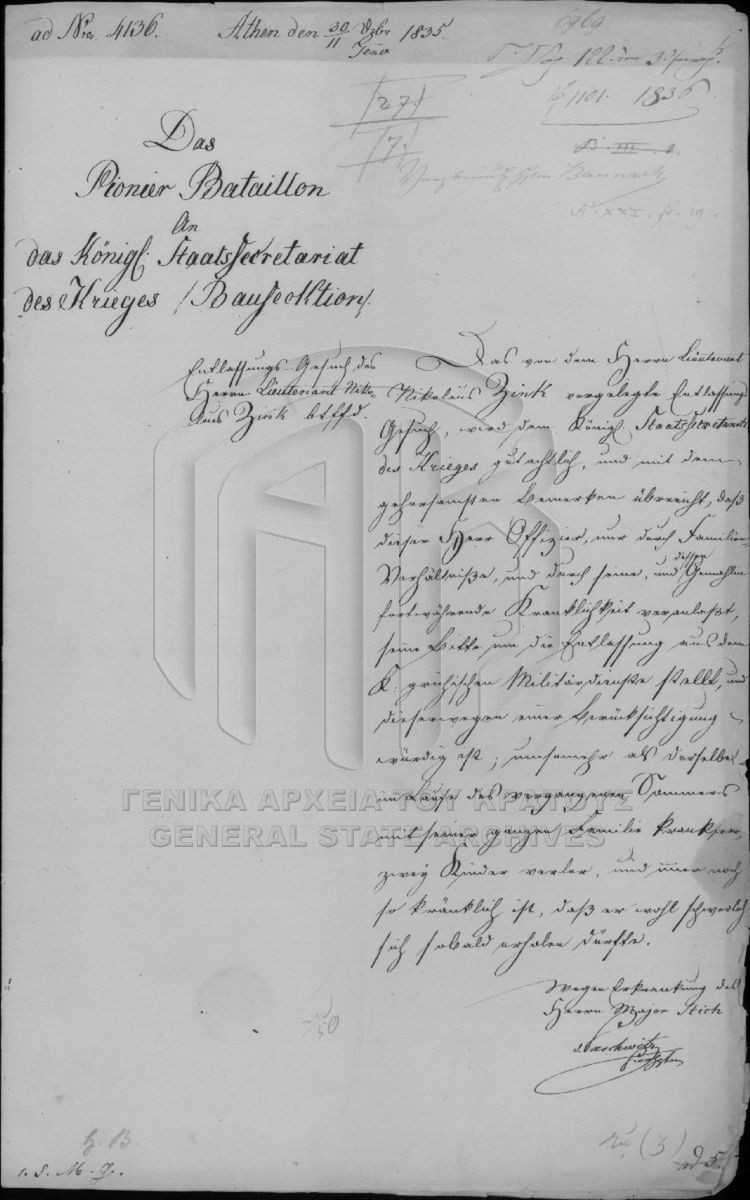 ad Nro. 4136.
Athen den 30/11 Dzbr/Jener 1835.
122.
1101. 1836
/27/
/7/
B. III. 1.
N. XXI. p. 19.
Das
Pionier Bataillon
An
das Königl: Staatssecretariat
des Krieges /Bausecktion/.
Entlassungs-Gesuch des
Herrn Lieutenant Niko-
laus Zink btffd.
Das von dem Herrn Lieutenant
Nikolaus Zink vorgelegte Entlassungs
Gesuch, wird dem Königl. Staatssecretariate
des Krieges gutachtlich, und mit dem
gehorsamsten Bemerken überreicht, daß
dieser Herr Offizier, nur durch Familien-
Verhältniße, und durch seine, und dessen Gemahlin
fortwährende Kranklichkeit veranlaßt,
seine Bitte um die Entlassung aus dem
K. grichischen Militärdienste stellt, und
dieserwegen einer Berücksichtigung
würdig ist; umsomehr als derselbe
im Laufe des vergangenen Sommers
mit seiner ganzen Familie krank war,
zwey Kinder verlor, und immer noch
so kränklich ist, daß er wohl schwerlich
sich sobald erholen dürfte.
Wegen Erkrankung des
Herrn Major Stich
ΓΕΝΙΚΑ ΑΡΧΕΙΑ ΤΟΥ ΚΡΑΤΟΥΣ
GENERAL STATE ARCHIVES
(3)
ad 5.